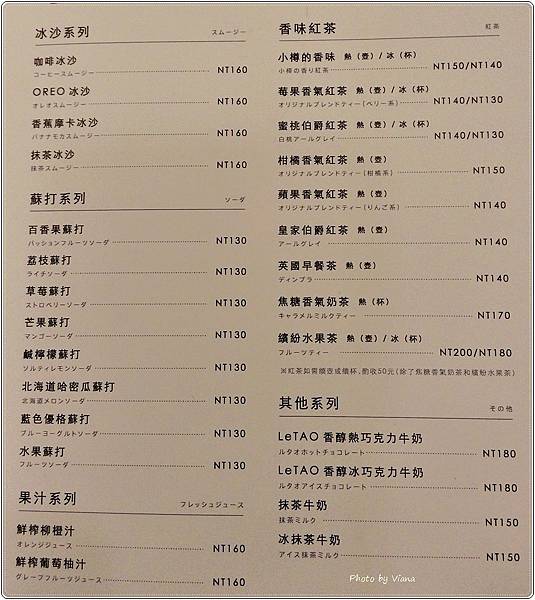 冰沙系列 スムージー
咖啡冰沙
コーヒースムージー NT160
OREO 冰沙
オレオスムージー NT160
香蕉摩卡冰沙
バナナモカスムージー NT160
抹茶冰沙
抹茶スムージー NT160
蘇打系列 ソーダ
百香果蘇打
パッションフルーツソーダ NT130
荔枝蘇打
ライチソーダ NT130
草莓蘇打
ストロベリーソーダ NT130
芒果蘇打
マンゴーソーダ NT130
鹹檸檬蘇打
ソルティレモンソーダ NT130
北海道哈密瓜蘇打
北海道メロンソーダ NT130
藍色優格蘇打
ブルーヨーグルトソーダ NT130
水果蘇打
フルーツソーダ NT130
果汁系列 フレッシュジュース
鮮榨柳橙汁
オレンジジュース NT160
鮮榨葡萄柚汁
グレープフルーツジュース NT160
香味紅茶 紅茶
小樽的香味 熱（壺）/ 冰（杯）
小樽の香り紅茶 NT150/NT140
莓果香氣紅茶 熱（壺）/ 冰（杯）
オリジナルブレンドティー(ベリー系) NT140/NT130
蜜桃伯爵紅茶 熱（壺）/ 冰（杯）
白桃アールグレイ NT140/NT130
柑橘香氣紅茶 熱（壺）
オリジナルブレンドティー(柑橘系) NT150
蘋果香氣紅茶 熱（壺）
オリジナルブレンドティー(りんご系) NT140
皇家伯爵紅茶 熱（壺）
アールグレイ NT140
英國早餐茶 熱（壺）
ディンブラ NT140
焦糖香氣奶茶 熱（杯）
キャラメルミルクティー NT170
繽紛水果茶 熱（壺）/ 冰（杯）
フルーツティー NT200/NT180
※紅茶如需續壺或續杯,酌收50元(除了焦糖香氣奶茶和繽紛水果茶)
其他系列 その他
LeTAO 香醇熱巧克力牛奶
ルタオホットチョコレート NT180
LeTAO 香醇冰巧克力牛奶
ルタオアイスチョコレート NT180
抹茶牛奶
抹茶ミルク NT150
冰抹茶牛奶
アイス抹茶ミルク NT150
Photo by Viana